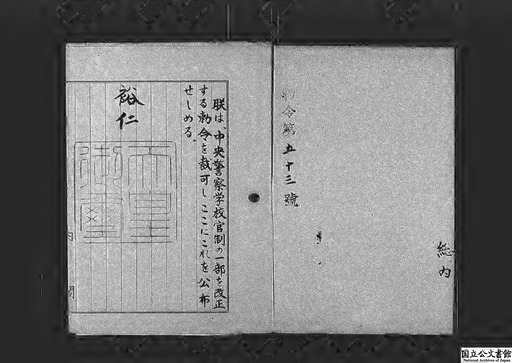 総内
勅令第五十三號
朕は、中央警察学校官制の一部を改正
する勅令を裁可し、ここにこれを公布
せしめる。
裕仁
天皇
御璽
内閣
国立公文書館
National Archives of Japan